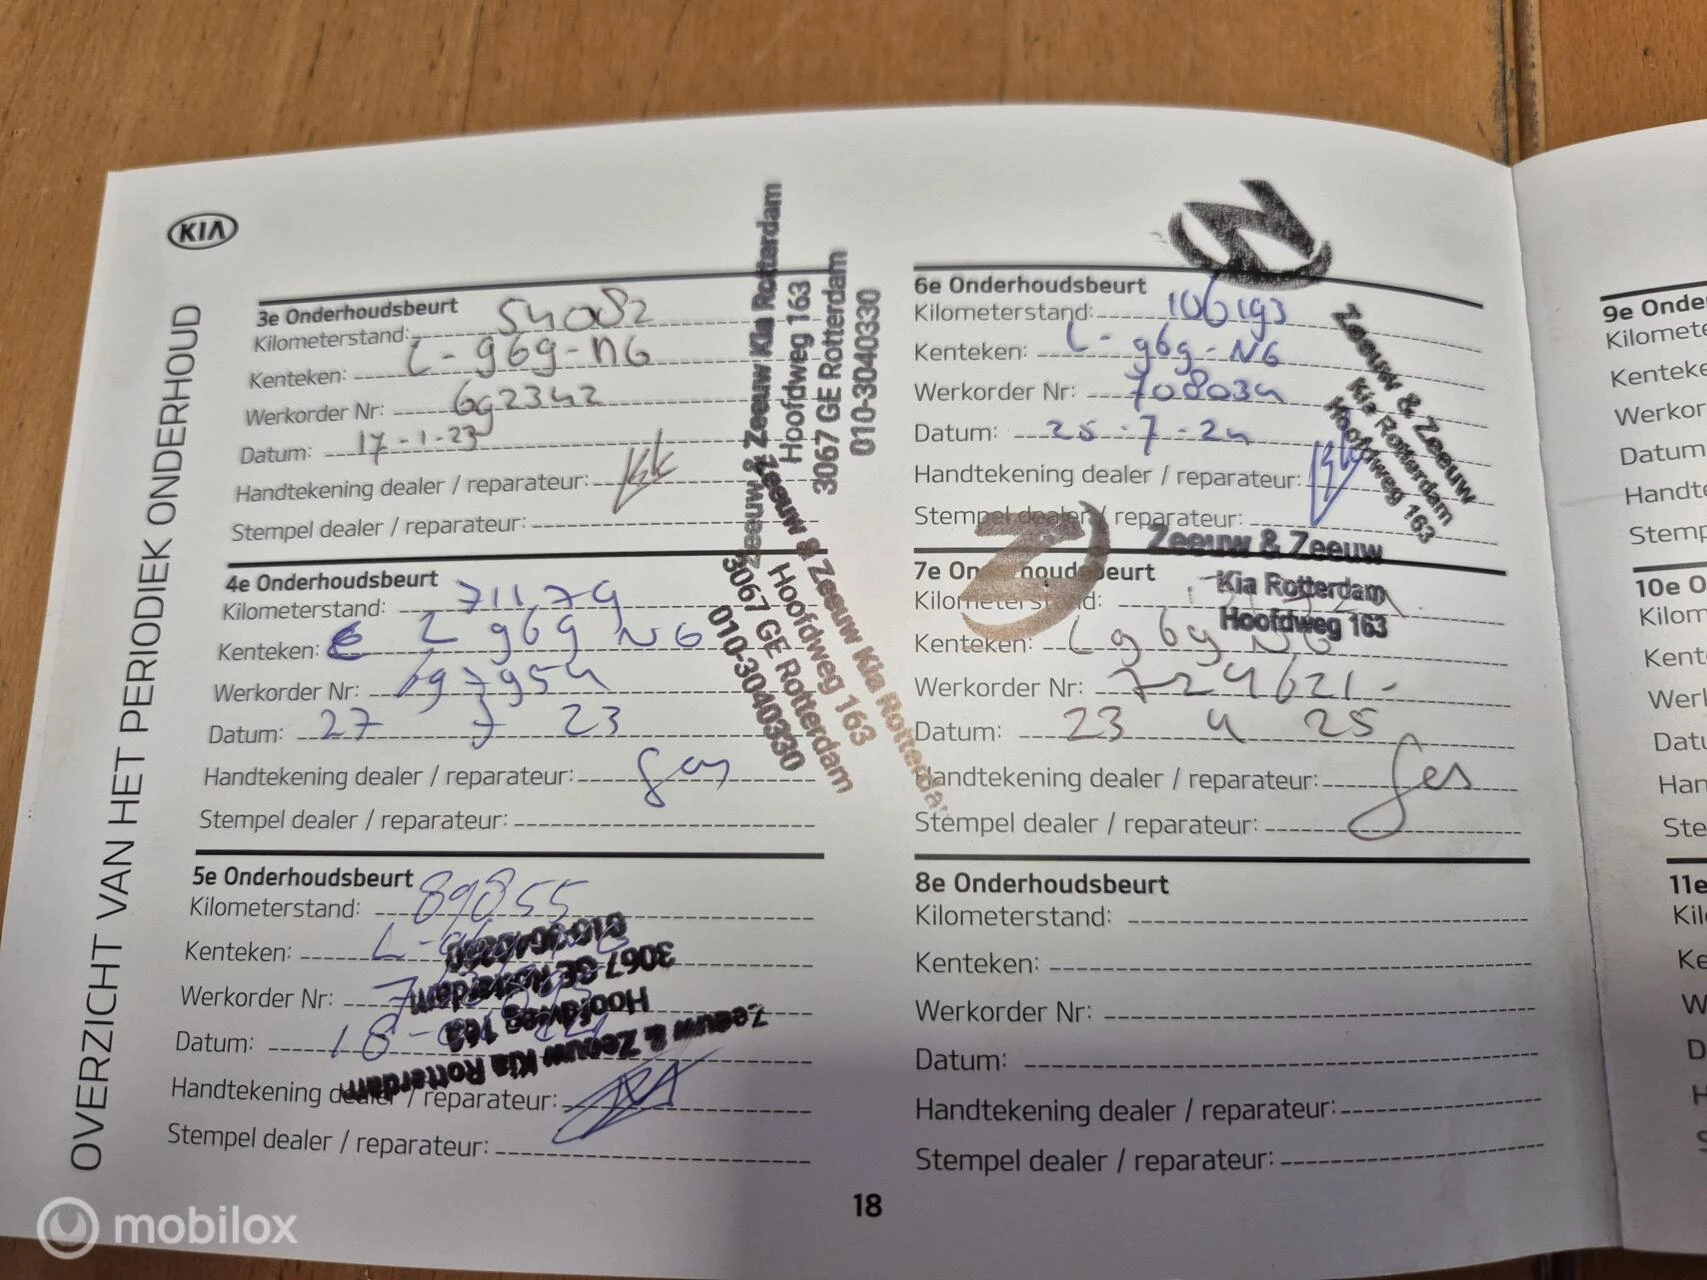 KIA
OVERZICHT VAN HET PERIODIEK ONDERHOUD
3e Onderhoudsbeurt
Kilometerstand: 54082
Kenteken: L-969-NG
Werkorder Nr: 692342
Datum: 17-1-23
Handtekening dealer / reparateur:
Stempel dealer / reparateur:
Zeeuw & Zeeuw Kia Rotterdam
Hoofdweg 163
3067 GE Rotterdam
010-3040330
4e Onderhoudsbeurt
Kilometerstand: 71179
Kenteken: L 969 NG
Werkorder Nr: 697954
Datum: 27 7 23
Handtekening dealer / reparateur:
Stempel dealer / reparateur:
Zeeuw & Zeeuw Kia Rotterdam
Hoofdweg 163
3067 GE Rotterdam
010-3040330
5e Onderhoudsbeurt
Kilometerstand: 89855
Kenteken:
Werkorder Nr:
Datum: 18-
Handtekening dealer / reparateur:
Stempel dealer / reparateur:
Zeeuw & Zeeuw Kia Rotterdam
Hoofdweg 163
3067 GE Rotterdam
6e Onderhoudsbeurt
Kilometerstand: 106193
Kenteken: L-969-NG
Werkorder Nr: 708034
Datum: 25-7-24
Handtekening dealer / reparateur:
Stempel dealer / reparateur:
Zeeuw & Zeeuw
Kia Rotterdam
Hoofdweg 163
7e Onderhoudsbeurt
Kilometerstand:
Kenteken: L 969 NG
Werkorder Nr: 724621-
Datum: 23 4 25
Handtekening dealer / reparateur:
Stempel dealer / reparateur:
Zeeuw & Zeeuw
Kia Rotterdam
Hoofdweg 163
8e Onderhoudsbeurt
Kilometerstand:
Kenteken:
Werkorder Nr:
Datum:
Handtekening dealer / reparateur:
Stempel dealer / reparateur:
18
9e Onde
Kilomete
Kenteke
Werkor
Datum
Handte
Stemp
10e O
Kilom
Kent
Werk
Datu
Han
Ste
11e
Kil
Ke
W
D
mobilox